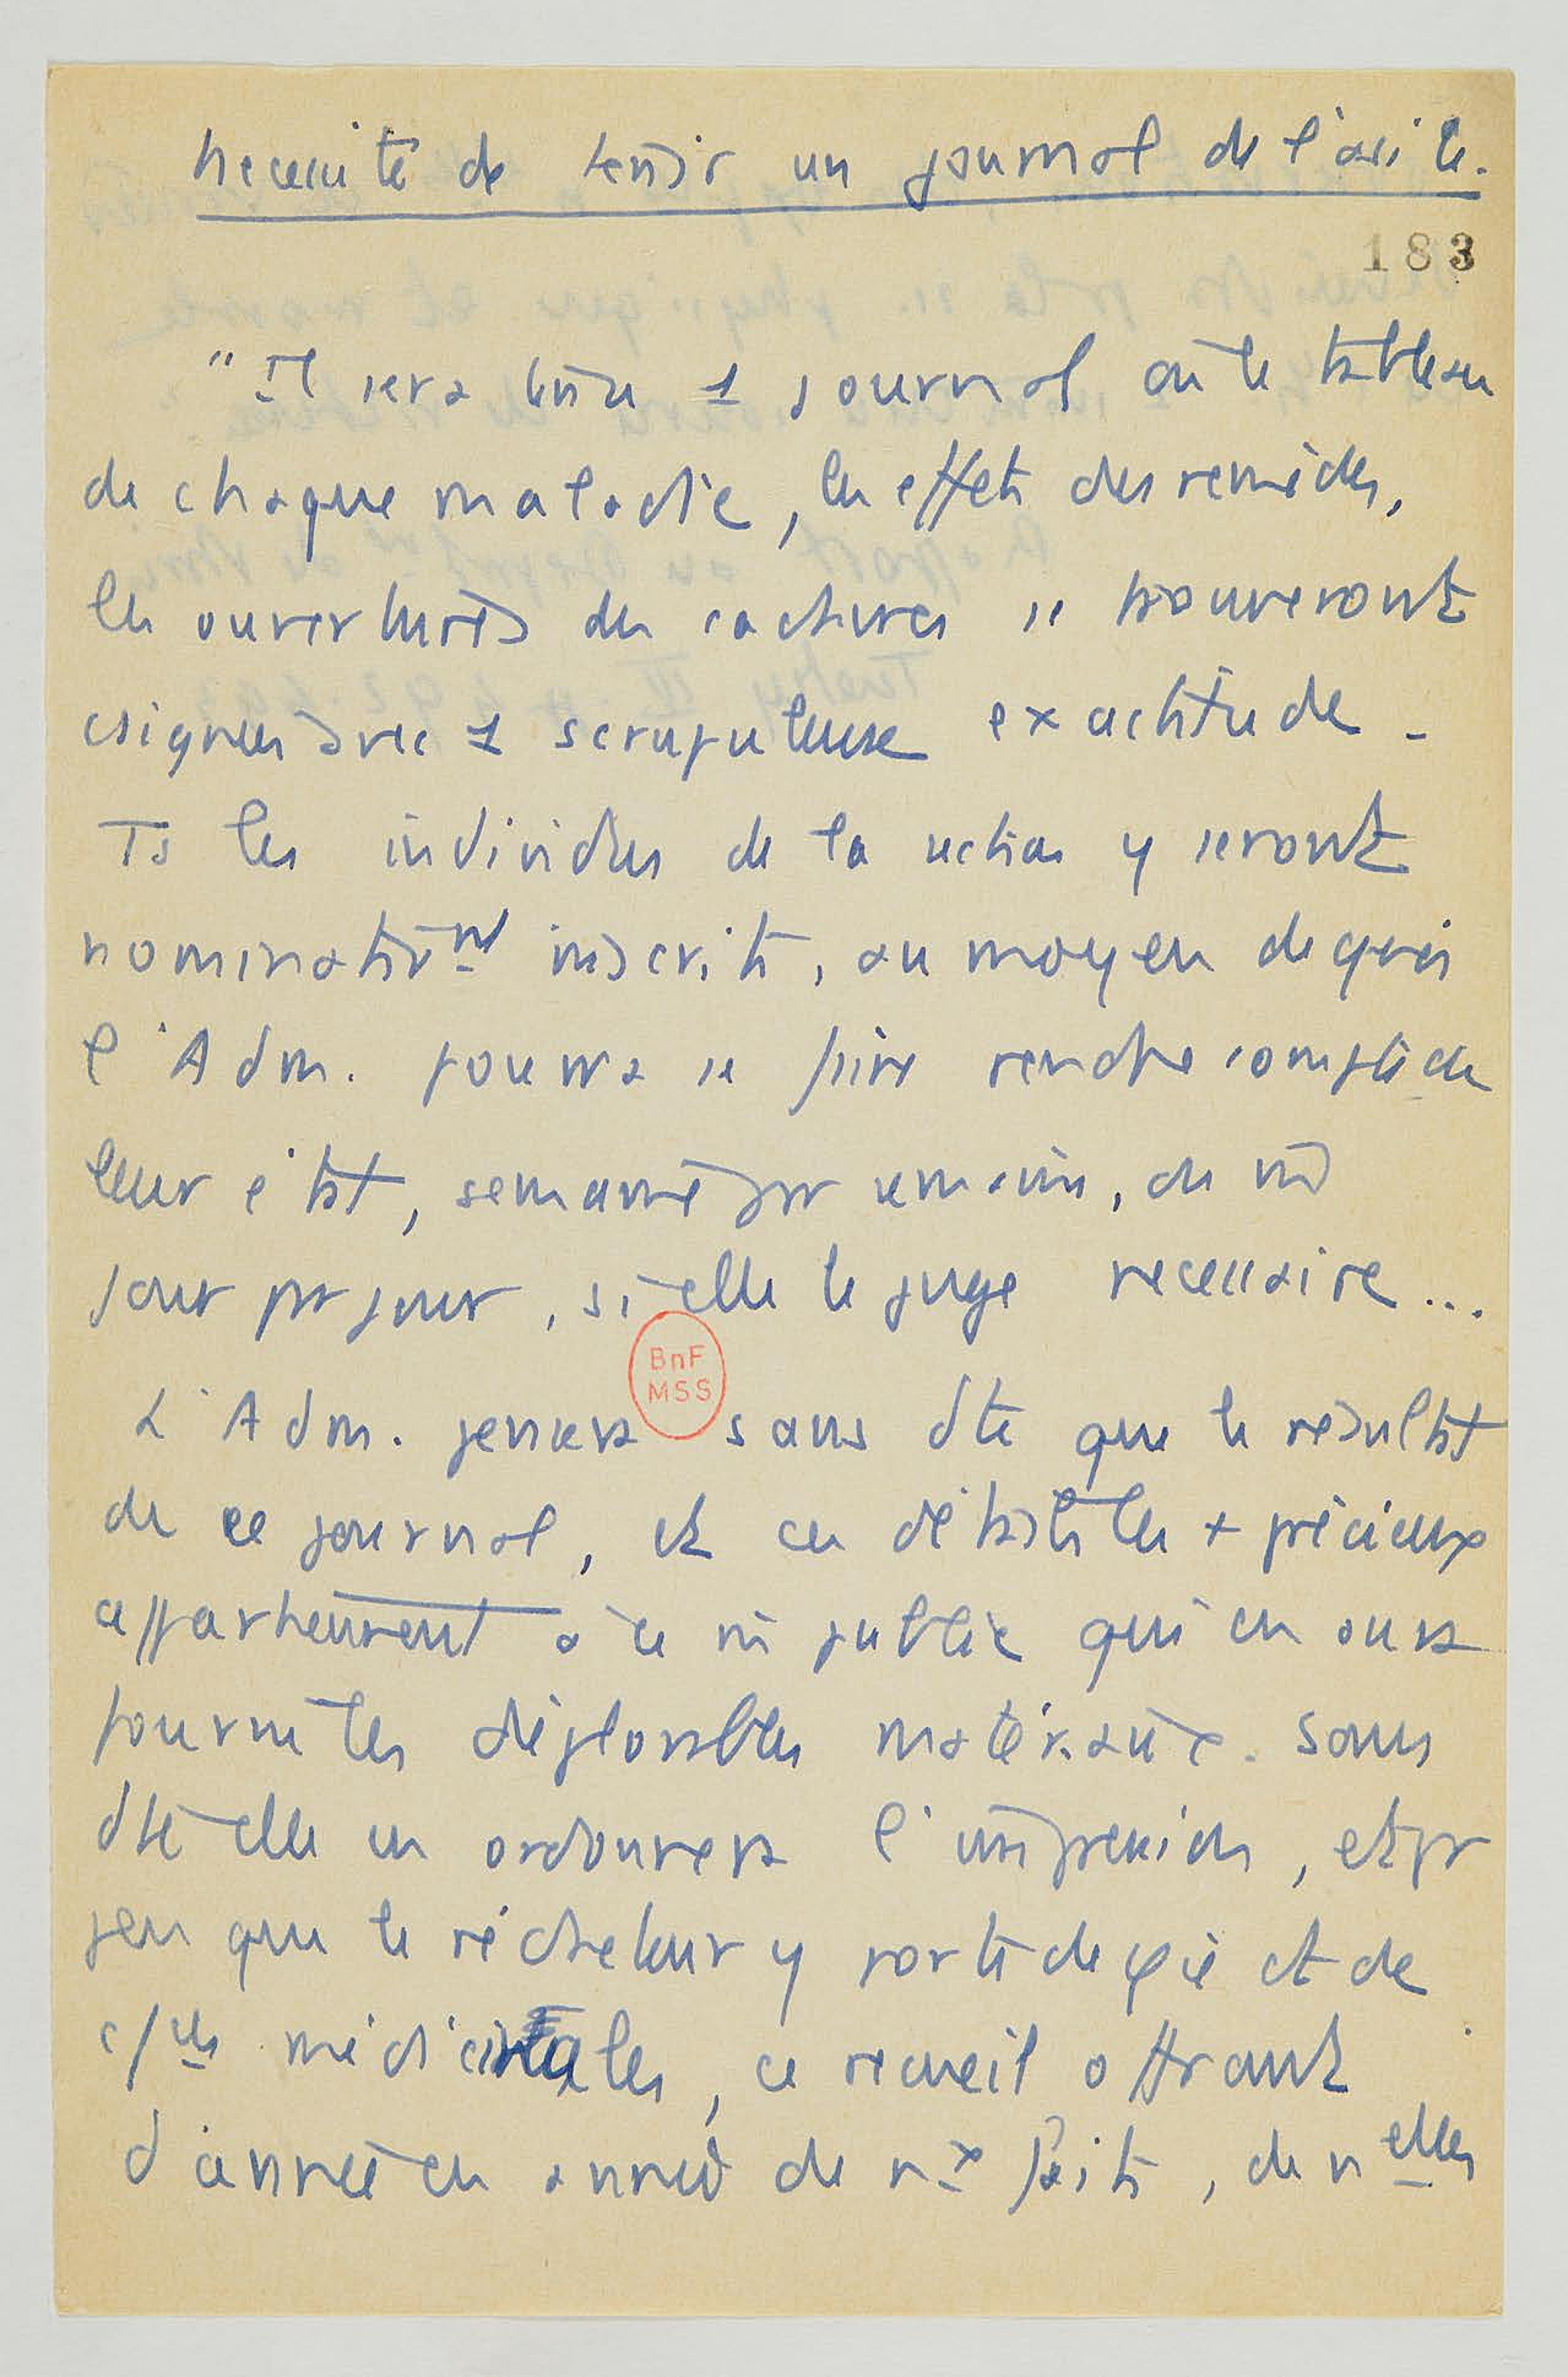 Necessité de tenir un journal de l'asile.
183
"Il sera tenu 1 journal où le tableau
de chaque maladie, les effets des remèdes,
les ouvertures des cadavres se trouveront
csignées avec 1 scrupuleuse exactitude -
Ts les individus de la section y seront
nominativnt inscrits, au moyen de quoi
l'Adm. pourra se faire rendre compte de
leur état, semaine par semaine, de m̂
jour par jour, si elle le juge necessaire...
BnF
MSS
L'Adm. pensera sans dte que le résultat
de ce journal, et ces détails les + précieux
appartiennent à ce m̂ public qui en aura
fourni les déplorables matériaux. Sans
dte elle en ordonnera l'impression, et pr
peu que le rédacteur y porte de φie et de
c/ces médicinales, ce recueil offrant
d'année en année de nx faits, de nelles